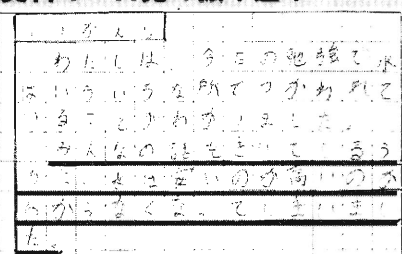 わたしは、今日の勉強で水
はいろいろな所でつかわれて
いることがわかりました。
みんなの話をきいているう
ちに、水は安いのか高いのか
わからなくなってしまいまし
た。